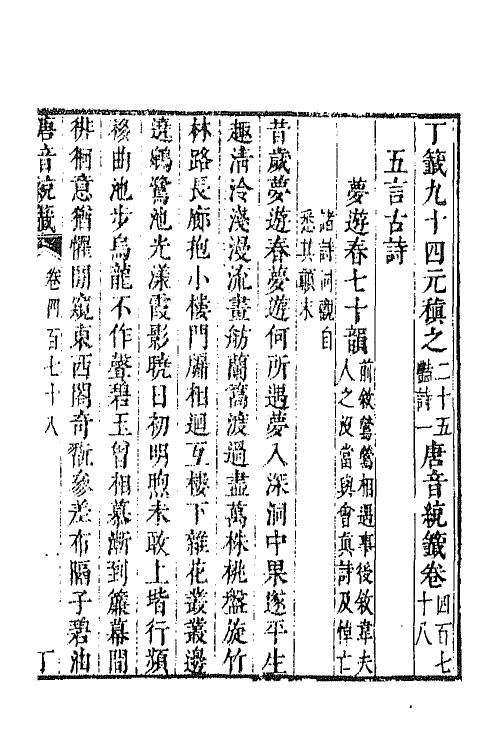 丁籖九十四元稹之二十五豔詩一唐音統籖卷四百七十八
五言古詩
夢遊春七十韻前敘鶯鶯相遇事後敘韋夫人之沒當與會真詩及悼亡
諸詩詞觀自悉其顛末
昔歲夢遊春夢遊何所遇夢入深洞中果遂平生
趣清泠淺漫流畫舫蘭篙渡過盡萬株桃盤旋竹
林路長廊抱小樓門牖相迴互樓下雜花叢叢邊
遶鵷鷺池光漾霞影曉日初明煦未敢上堦行頻
移曲池步烏龍不作聲碧玉曾相慕漸到簾幕間
徘徊意猶懼閒窺東西閤奇翫參差布隔子碧油
唐音統籖 卷四百七十八 丁